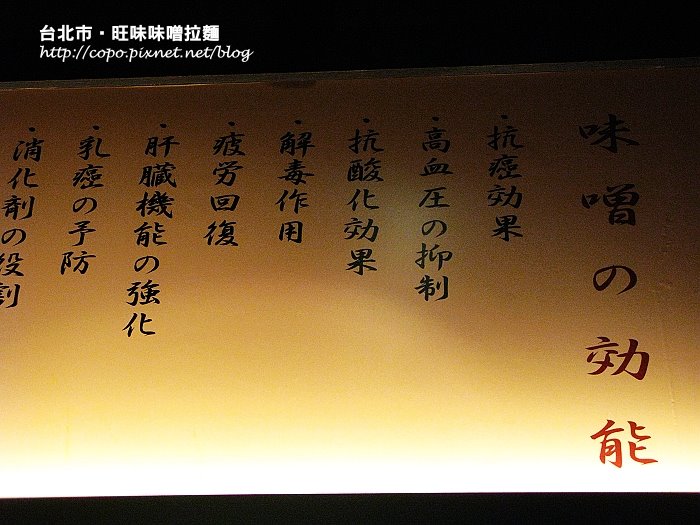 台北市・旺味味噌拉麵
http://copo.pixnet.net/blog
味噌の効能
・抗癌効果
・高血圧の抑制
・抗酸化効果
・解毒作用
・疲労回復
・肝臓機能の強化
・乳癌の予防
・消化剤の役割